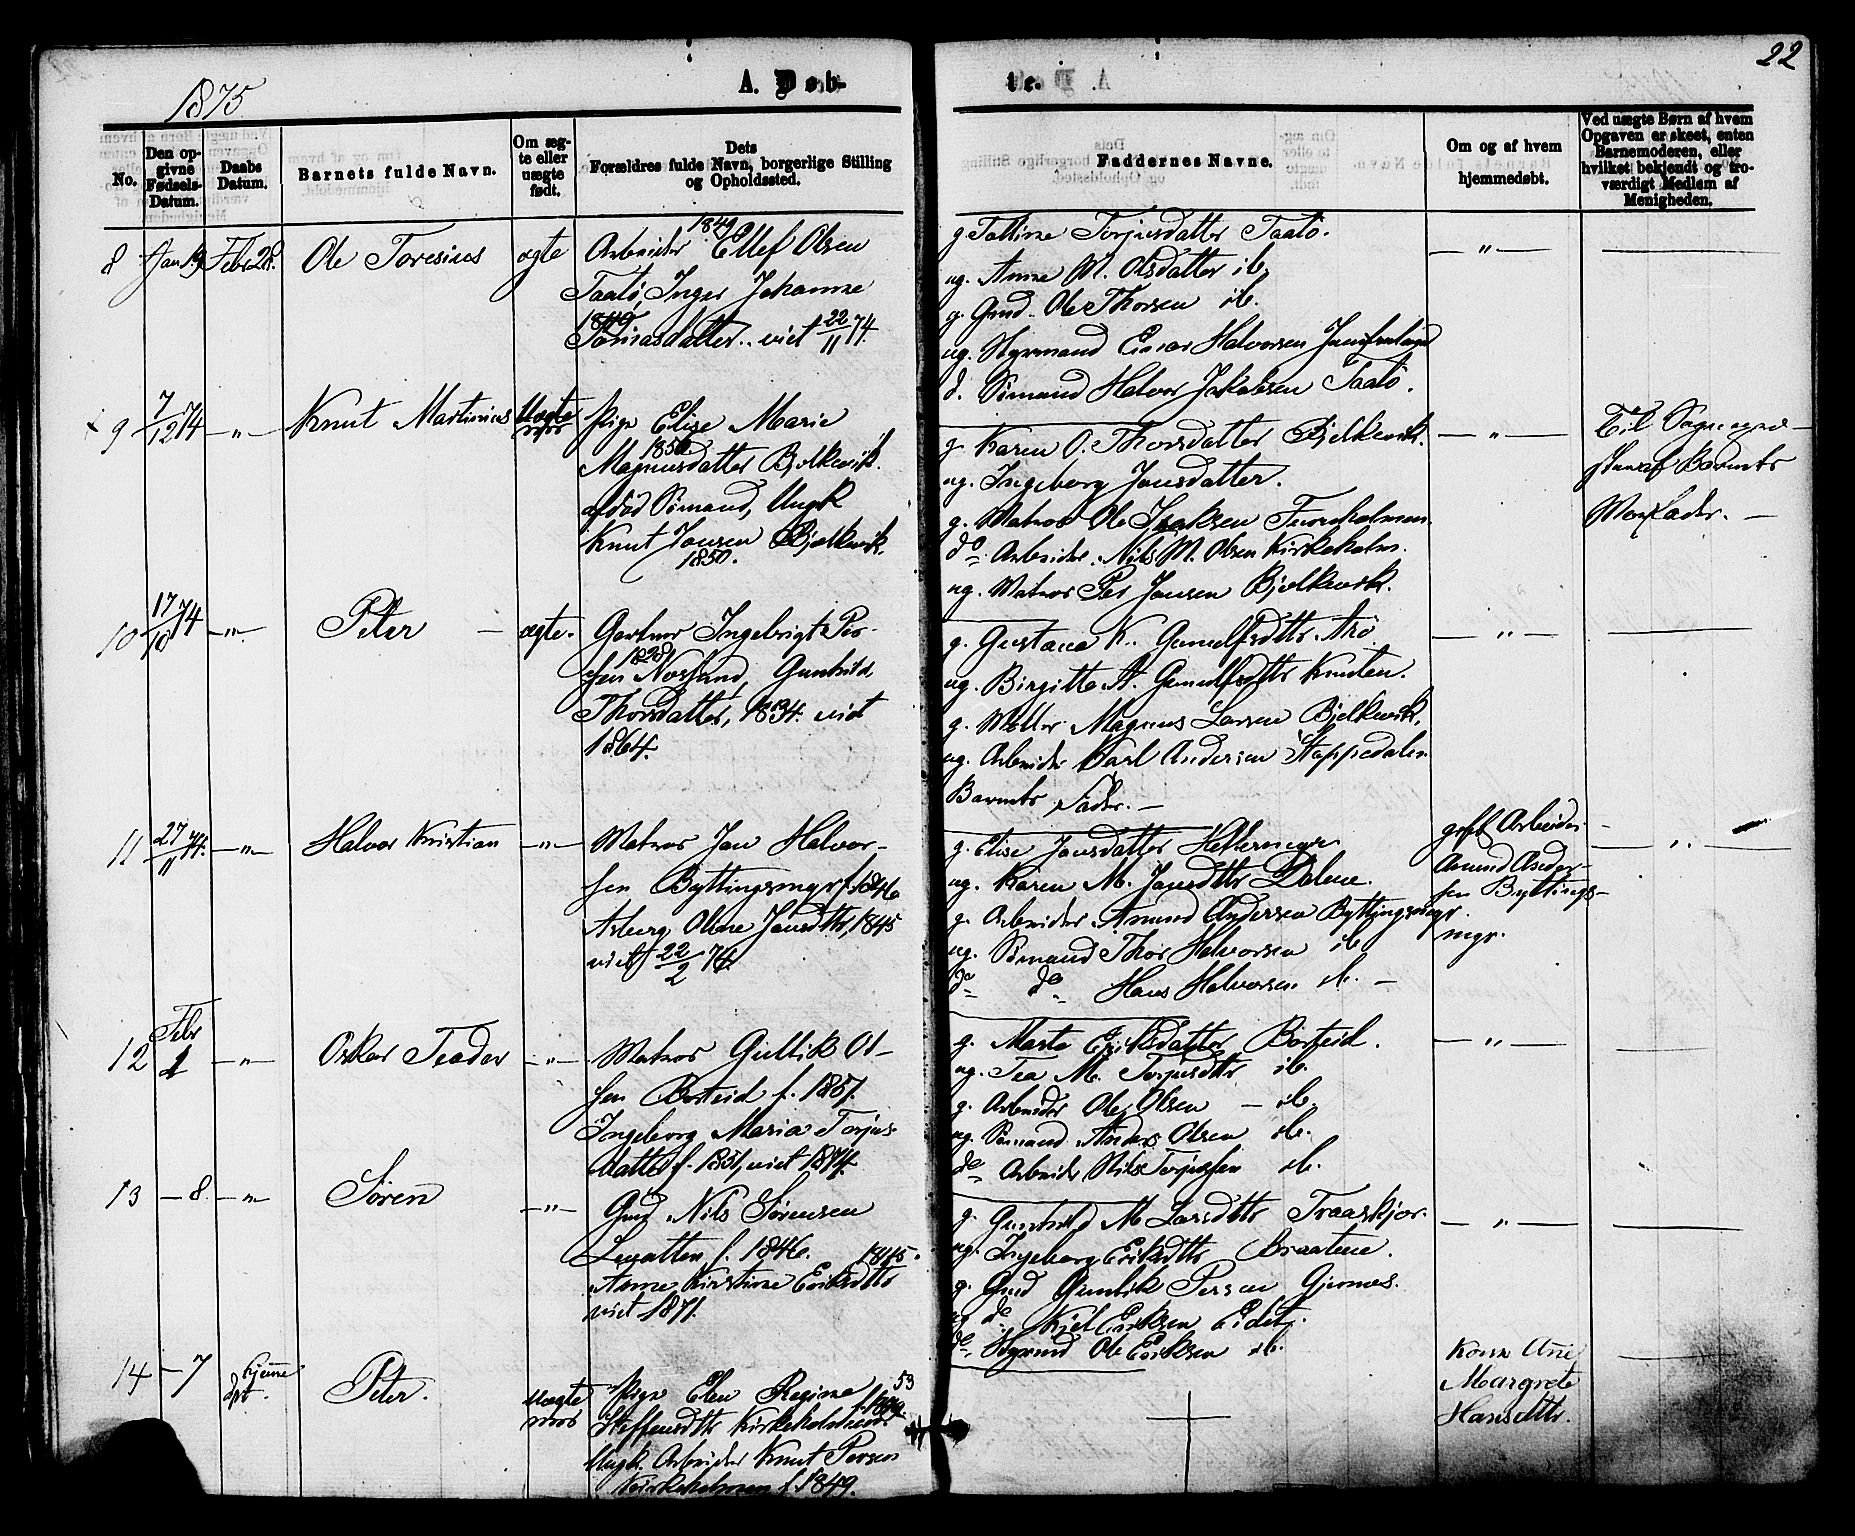 22
1875
A. Døb-
te.
No.
Den op-
givne
Fødsels-
Datum.
Daabs
Datum.
Barnets fulde Navn.
Om æg-
te eller
uægte
født.
Dets
Forældres fulde Navn, borgerlige Stilling
og Opholdssted.
Faddernes Navne.
Om og af hvem
hjemmedøbt.
Ved uægte Børn af hvem
Opgaven er skeet, enten
Barnemoderen, eller
hvilket bekjendt og tro-
værdigt Medlem af
Menigheden.
8 Jan 19. Febr 28. Ole Toresius ægte
Arbeider Ellef Olsen
1849
Taatø, Inger Johanne
1849
Tomasdatter. viet 22/11 74.
g. Torjusdatter Taatø.
ug. Anne M. Olsdatter ib.
g. Gmd. Ole Thorsen ib.
ug. Styrmand Einar Halvorsen
d. Sømand Halvor Jakobsen Taatø.
— „ —
9 7/12 74 — „ — Knut Martinius Uægte
Pige Elise Marie
1856
Magnusdatter Bjelkevik.
Sømand, Ungk
Knut Jansen Bjelkevik.
1850.
g. Karen O. Thorsdatter Bjelkevik.
ug. Ingeborg Jansdatter.
g. Matros Ole Isaksen
do. Arbeider Nils M. Olsen Kirkeholm.
ug. Matros Per Jansen Bjelkevik.
— „ —
Til Sogne-
Barnets
Morfader. —
10 17/10 74 — „ — Peter — ægte.
Ingebrigt Per-
1828
sen Gunhild
Thorsdatter, 1834. viet
1864.
g. Gustava K. Gunulfsdttr Arø
ug. Birgitte A. Gunulfsdttr Knuten.
g. Møller Magnus Larsen Bjelkevik.
ug. Arbeider Karl Andersen Stoppedalen
Barnets Fader. —
— „ —
11 27/11 74. — „ — Halvor Kristian — „ —
Matros Jan Halvor-
sen Byttingsmyr f. 1846
Aslaug Oline Jansdttr, 1845
viet 22/2 74.
g. Elise Jansdatter
ug. Karen M. Jansdttr Dalene.
g. Arbeider Amund Andersen Byttingsmyr.
ug. Sømand Thor Halvorsen ib
do. do. Hans Halvorsen ib. —
Arbeider
Amund Ander-
sen Byttings-
myr.
— „ —
12 Febr
1 — „ — Oskar Teodor — „ —
Matros Gullik Ol-
sen Borteid f. 1851.
Ingeborg Maria Torjus-
datter f. 1851, viet 1874.
g. Marte Eriksdatter Borteid.
ug. Tea M. Torjusdttr ib.
g. Arbeider Ole Olsen — ib.
ug. Sømand Anders Olsen ib.
do. Arbeider Nils Torjussen ib.
— „ —
13 — 8. — „ — Søren — „ —
Gmd Nils Sørensen
f. 1846. 1845.
Anne Kirstine Eriksdttr
viet 1871.
g. Gunhild M. Larsdttr Traaskjær.
ug. Ingeborg Eriksdttr Braatene.
g. Gmd Gunlik Persen Gjernes.
ug. do. Kjel Eriksen Eidet.
do. Styrmd Ole Eriksen ib.
— „ —
14 — 7 hjemme
dpt. Peter. uægte
Pige Elen Regine 53
Steffensdttr Kirkeholmen
Ungk. Arbeider Knut Persen
Kirkeholmen f. 1849.
Kone Ane
Margrete
Hansdttr.